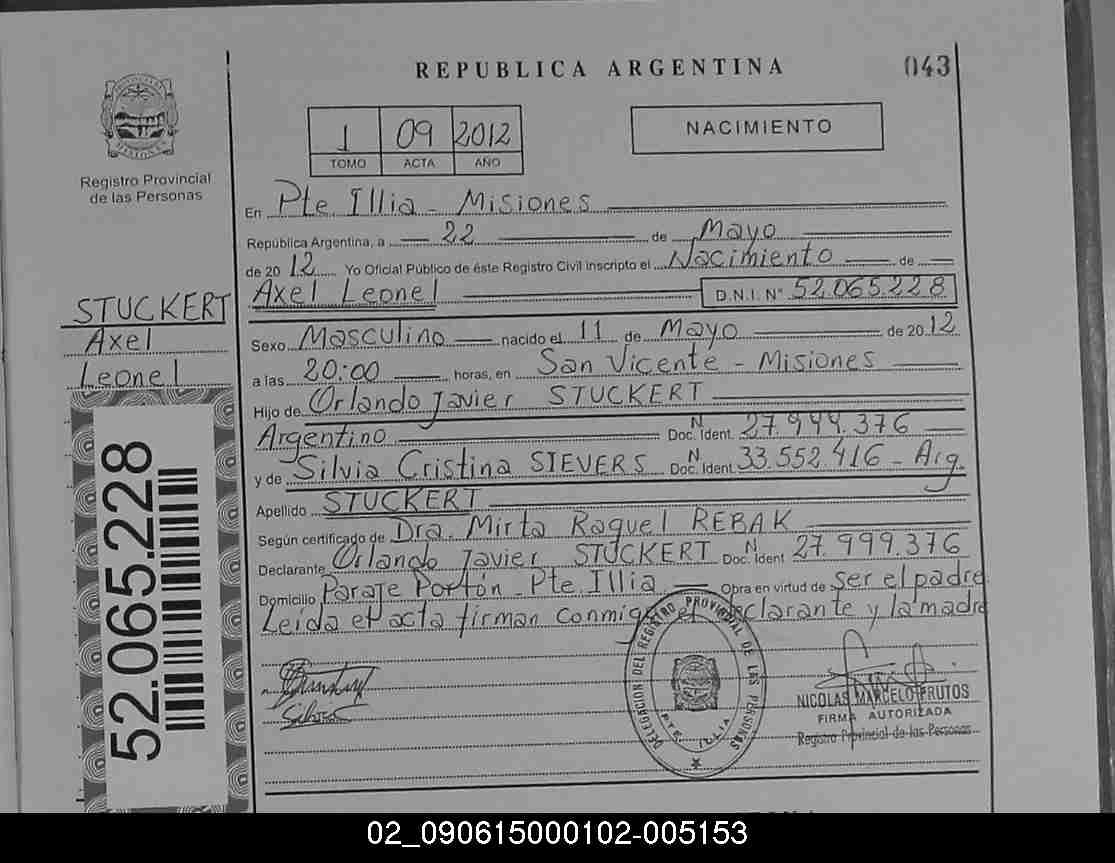 REPUBLICA ARGENTINA
043
1 09 2012
TOMO ACTA AÑO
NACIMIENTO
MISIONES
Registro Provincial
de las Personas
En Pte. Illia - Misiones
República Argentina, a 22 de Mayo
de 2012 Yo Oficial Público de éste Registro Civil inscripto el Nacimiento de
Axel Leonel D.N.I. N° 52.065.228
STUCKERT
Axel
Leonel
52.065.228
Sexo Masculino nacido el 11 de Mayo de 2012
a las 20:00 horas, en San Vicente - Misiones
Hijo de Orlando Javier STUCKERT
Argentino Doc. Ident. N 27.999.376
y de Silvia Cristina SIEVERS Doc. Ident. N 33.552.416 - Arg.
Apellido STUCKERT
Según certificado de Dra. Mirta Raquel REBAK
Declarante Orlando Javier STUCKERT Doc. Ident N 27.999.376
Domicilio Paraje Portón - Pte. Illia Obra en virtud de ser el padre
Leída el acta firman conmigo el declarante y la madre
DELEGACION DEL REGISTRO PROVINCIAL DE LAS PERSONAS
PTE. ILLIA
NICOLAS MARCELO FRUTOS
FIRMA AUTORIZADA
Registro Provincial de las Personas
02_090615000102-005153